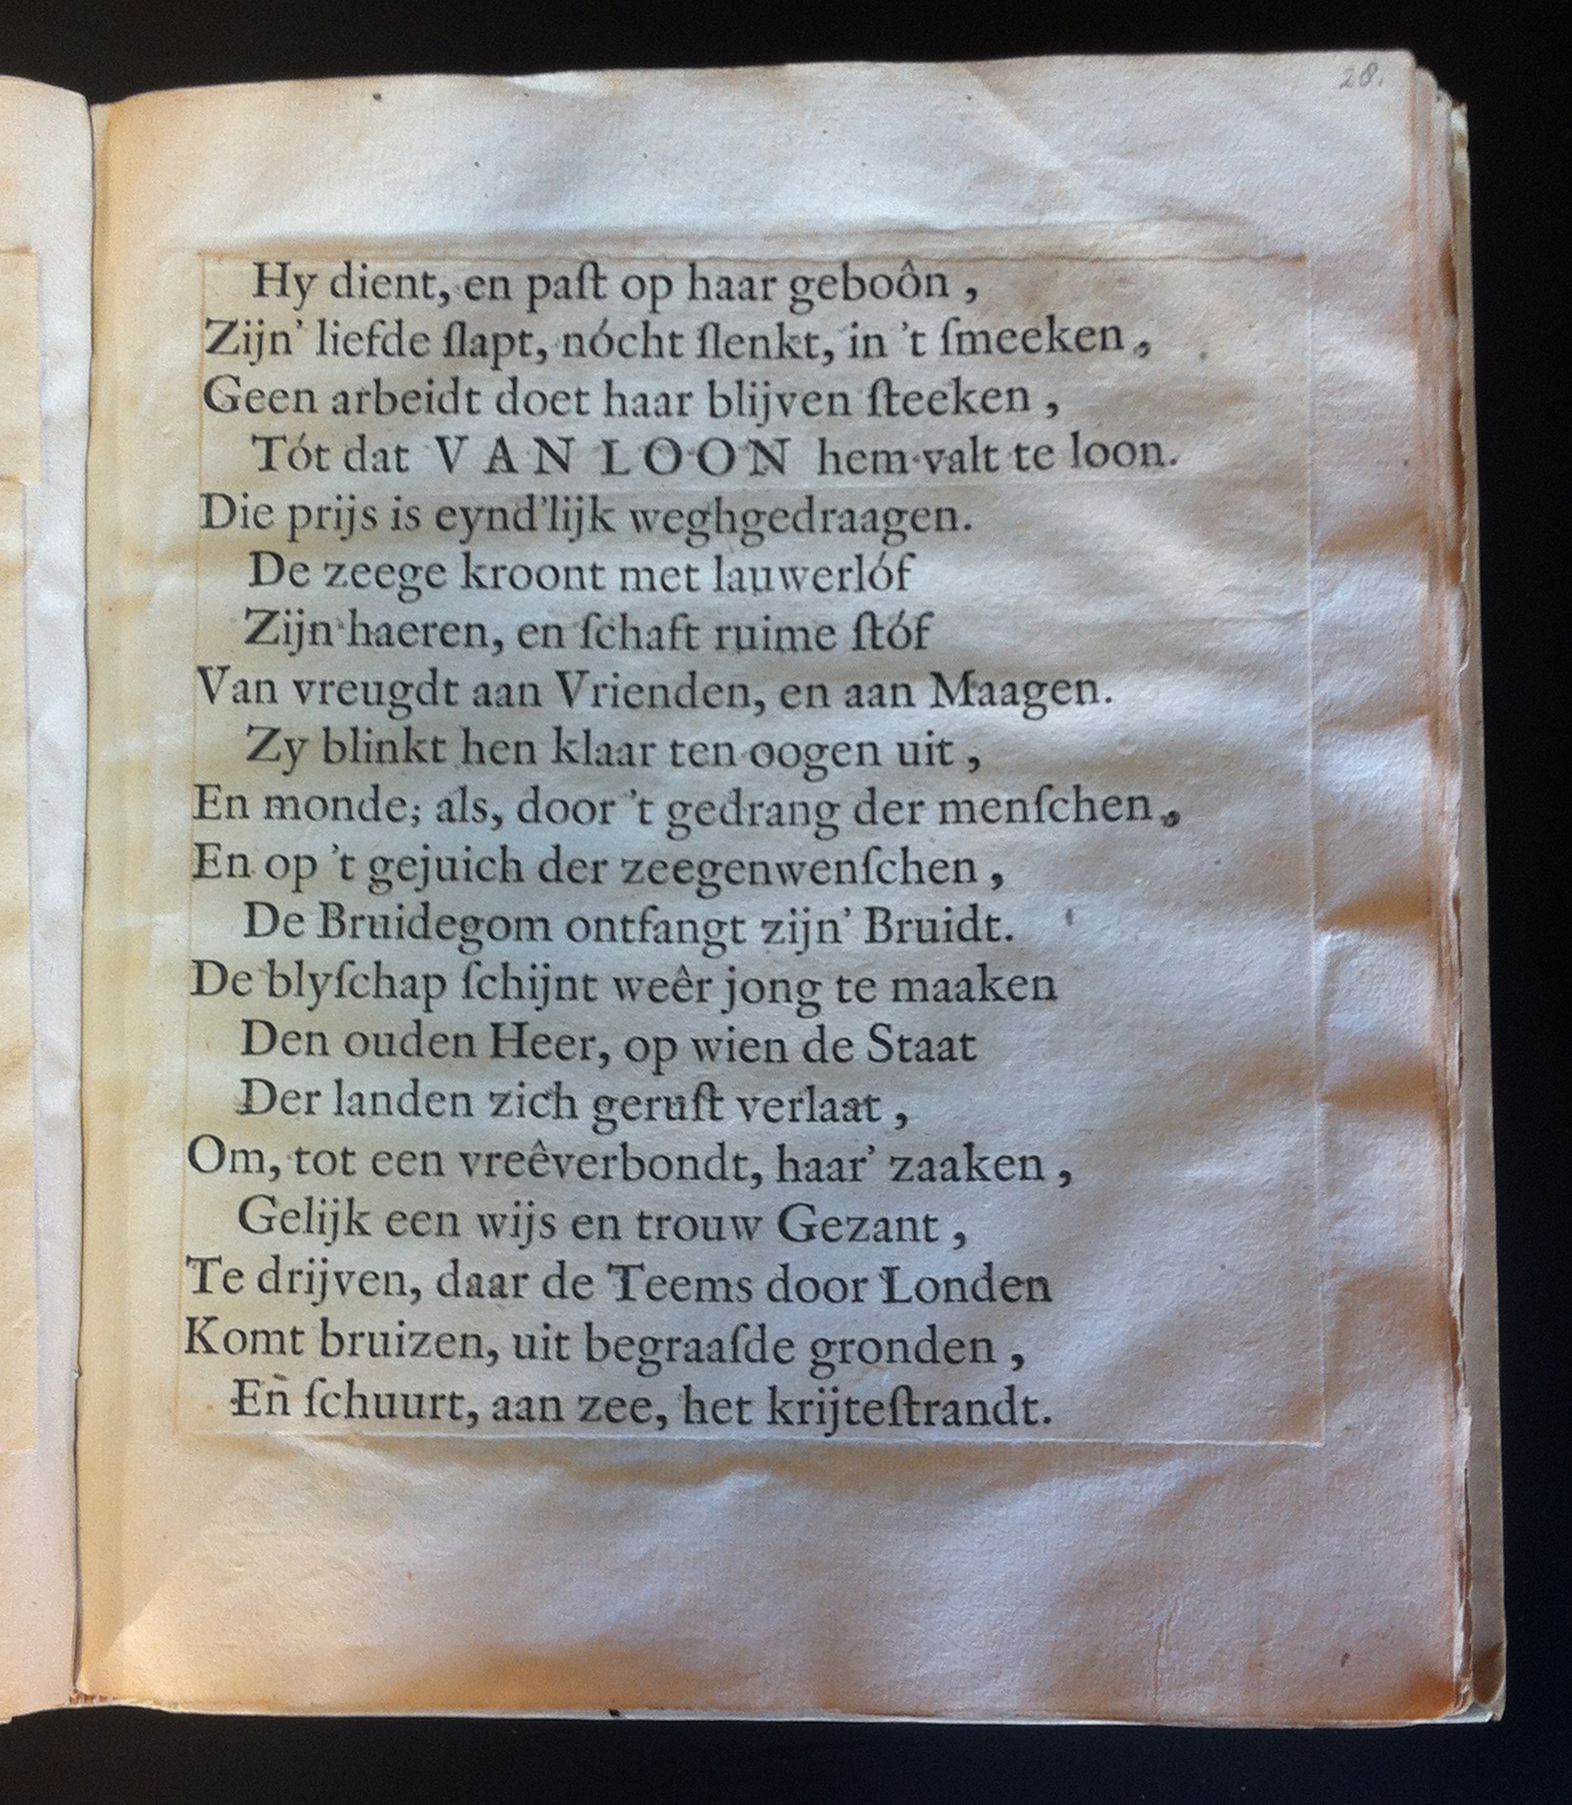 28.
Hy dient, en paſt op haar geboôn,
Zijn' liefde ſlapt, nócht ſlenkt, in 't ſmeeken,
Geen arbeidt doet haar blijven ſteeken,
Tót dat VAN LOON hem valt te loon.
Die prijs is eynd'lijk weghgedraagen.
De zeege kroont met lauwerlóf
Zijn haeren, en ſchaft ruime ſtóf
Van vreugdt aan Vrienden, en aan Maagen.
Zy blinkt hen klaar ten oogen uit,
En monde; als, door 't gedrang der menſchen,
En op 't gejuich der zeegenwenſchen,
De Bruidegom ontfangt zijn' Bruidt.
De blyſchap ſchijnt weêr jong te maaken
Den ouden Heer, op wien de Staat
Der landen zich geruſt verlaat,
Om, tot een vreêverbondt, haar' zaaken,
Gelijk een wijs en trouw Gezant,
Te drijven, daar de Teems door Londen
Komt bruizen, uit begraaſde gronden,
En ſchuurt, aan zee, het krijteſtrandt.